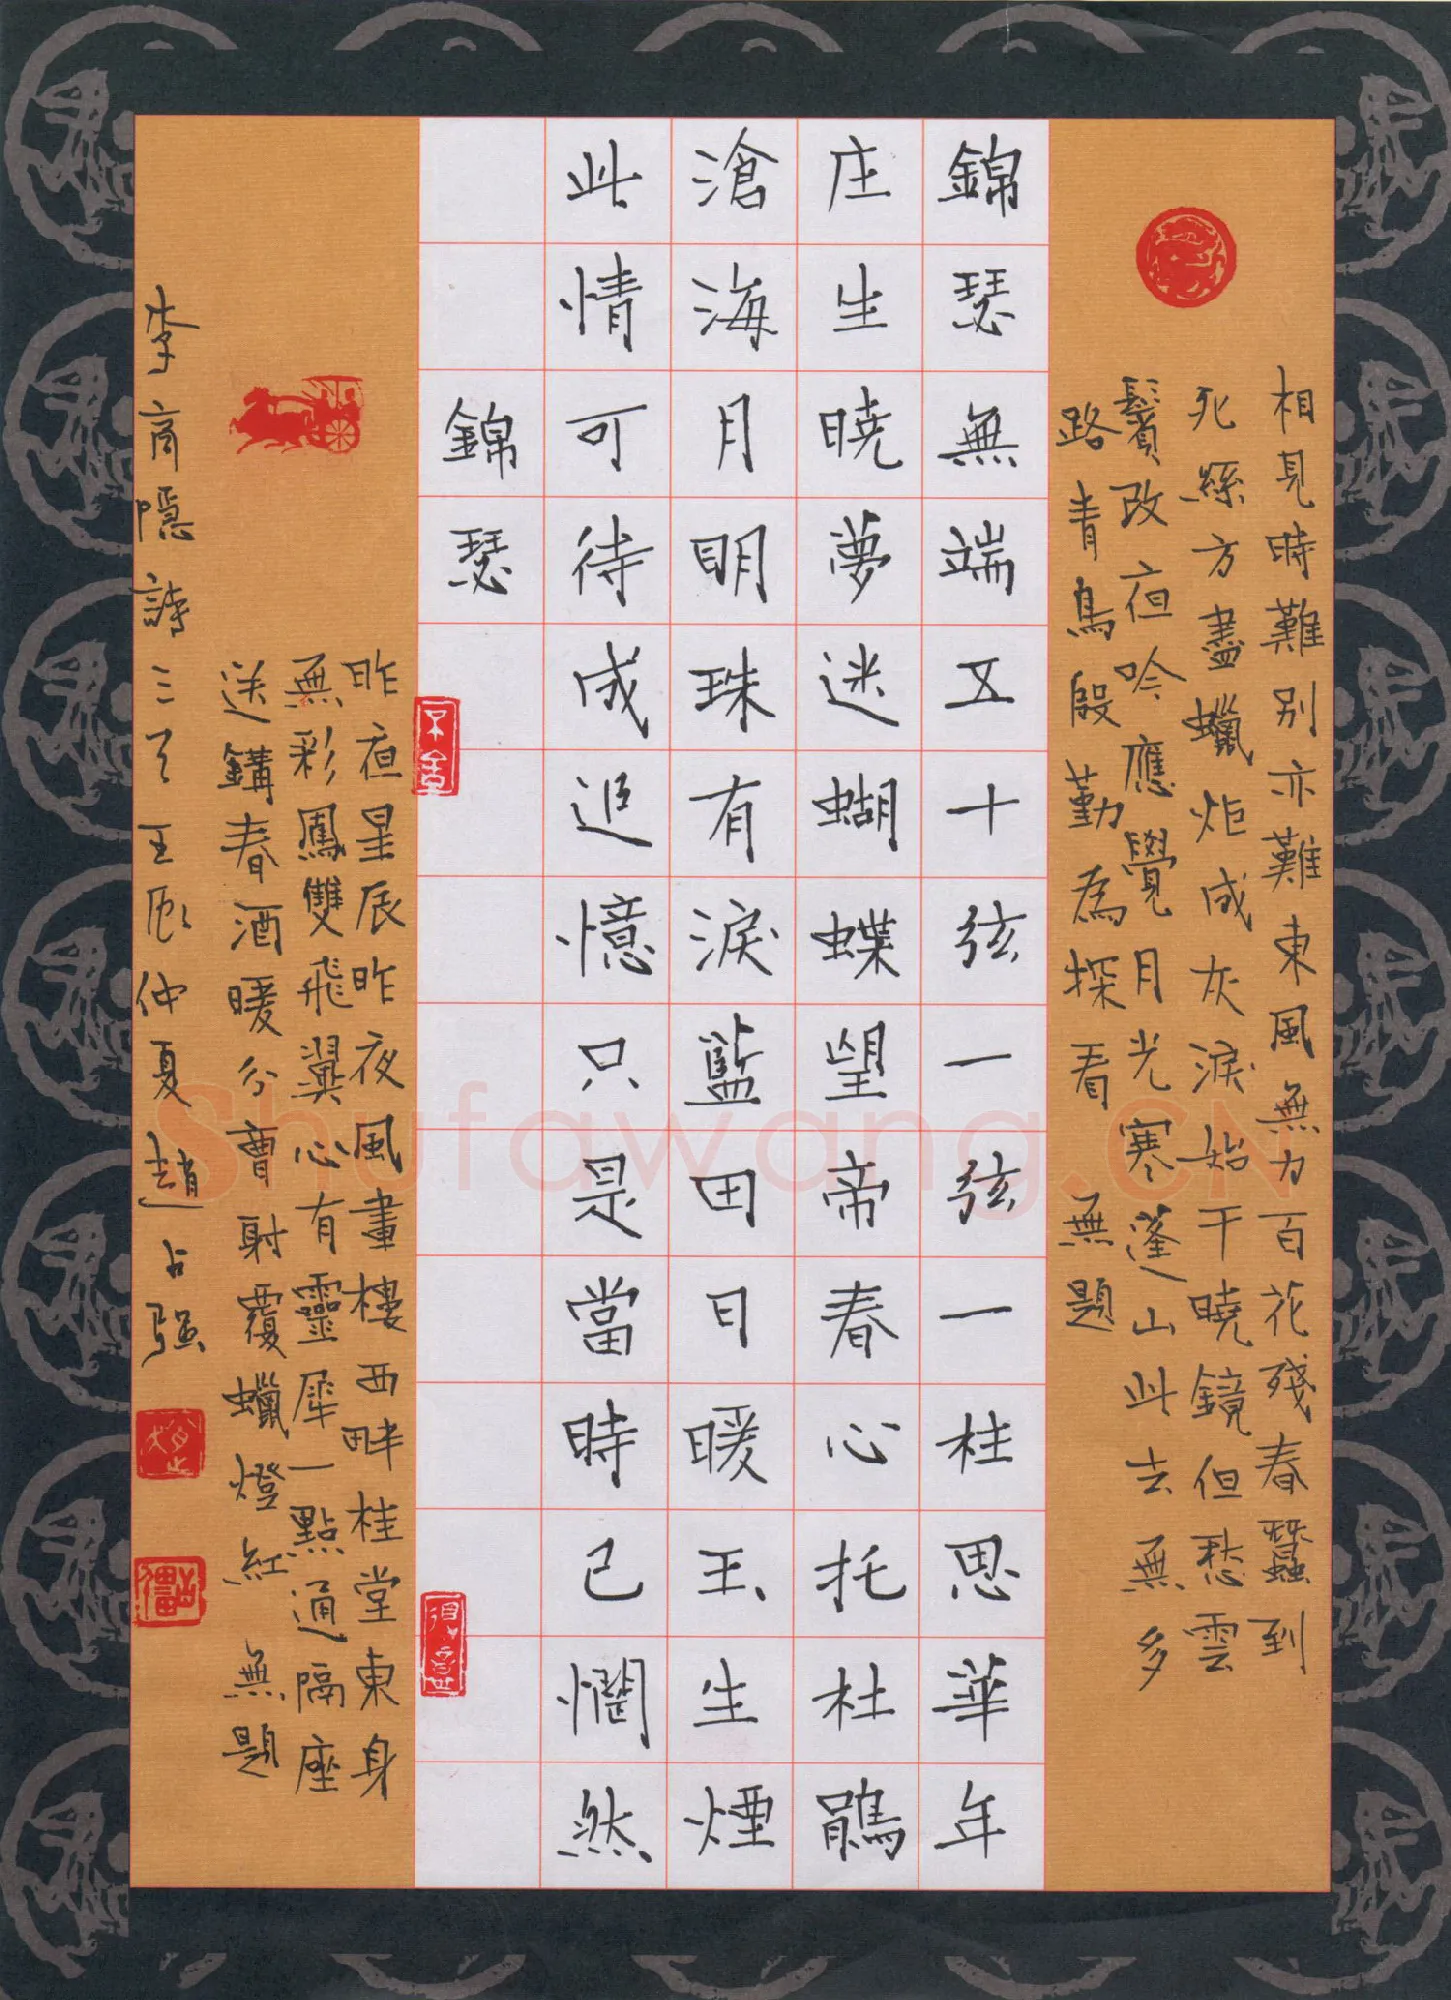 相見時難別亦難東風無力百花殘春蠶到
死絲方盡蠟炬成灰淚始干曉鏡但愁雲
鬢改夜吟應覺月光寒蓬山此去無多
路青鳥殷勤為探看 無題
錦瑟無端五十弦一弦一柱思華年
庄生曉夢迷蝴蝶望帝春心托杜鵑
滄海月明珠有淚藍田日暖玉生煙
此情可待成追憶只是當時已惘然
錦瑟
昨夜星辰昨夜風畫樓西畔桂堂東身
無彩鳳雙飛翼心有靈犀一點通隔座
送鉤春酒暖分曹射覆蠟燈紅 無題
李商隱詩三首壬辰仲夏趙占強
Shufawang.CN